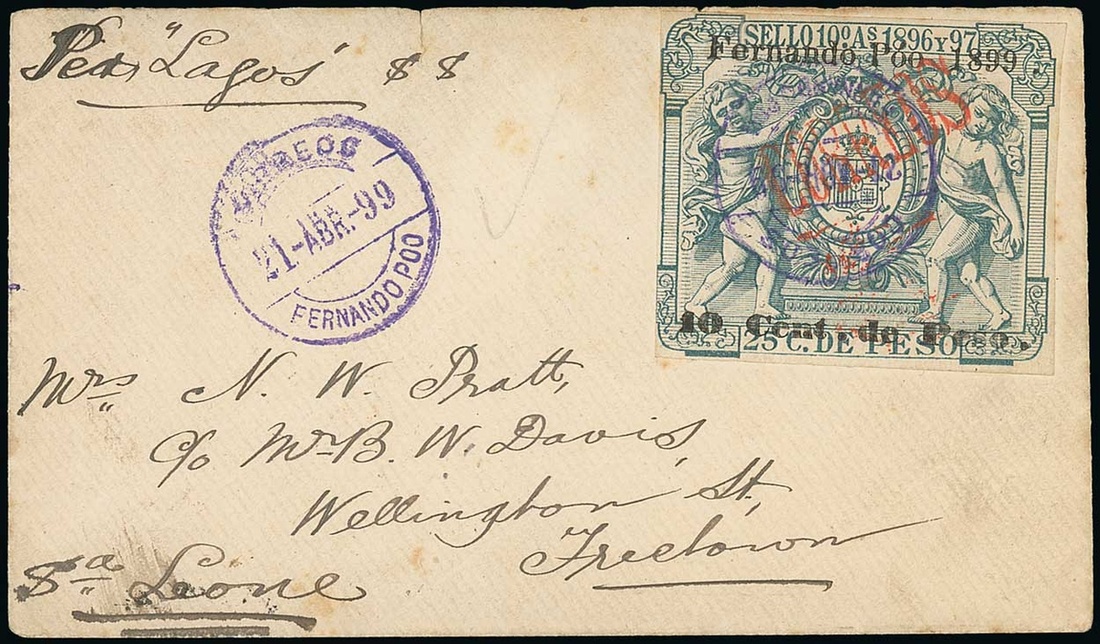 Per "Lagos" S S
SELLO 10º AS 1896 Y 97
Fernando Póo 1899
CORREOS
21-ABR.-99
FERNANDO POO
10 Cent. de Peso.
25 C. DE PESO
Mrs N. W. Pratt,
c/o Mr B. W. Davis,
Wellington St,
Freetown
Sa Leone